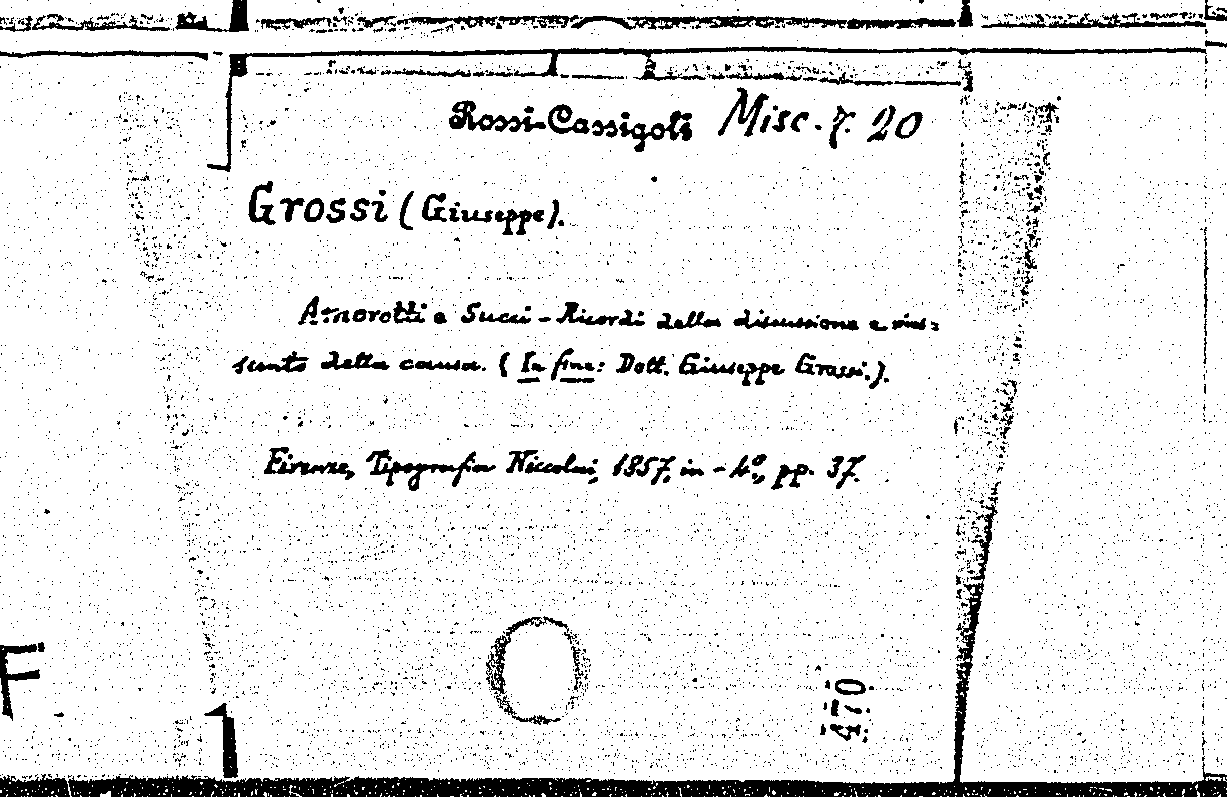 Rossi-Cassigoli Misc. 7. 20
Grossi (Giuseppe).
Amorotti e Succi - Ricordi della discussione e rias=
sunto della causa. (In fine: Dott. Giuseppe Grassi.).
Firenze, Tipografia Niccolai, 1857, in-4º, pp. 37.
470
F